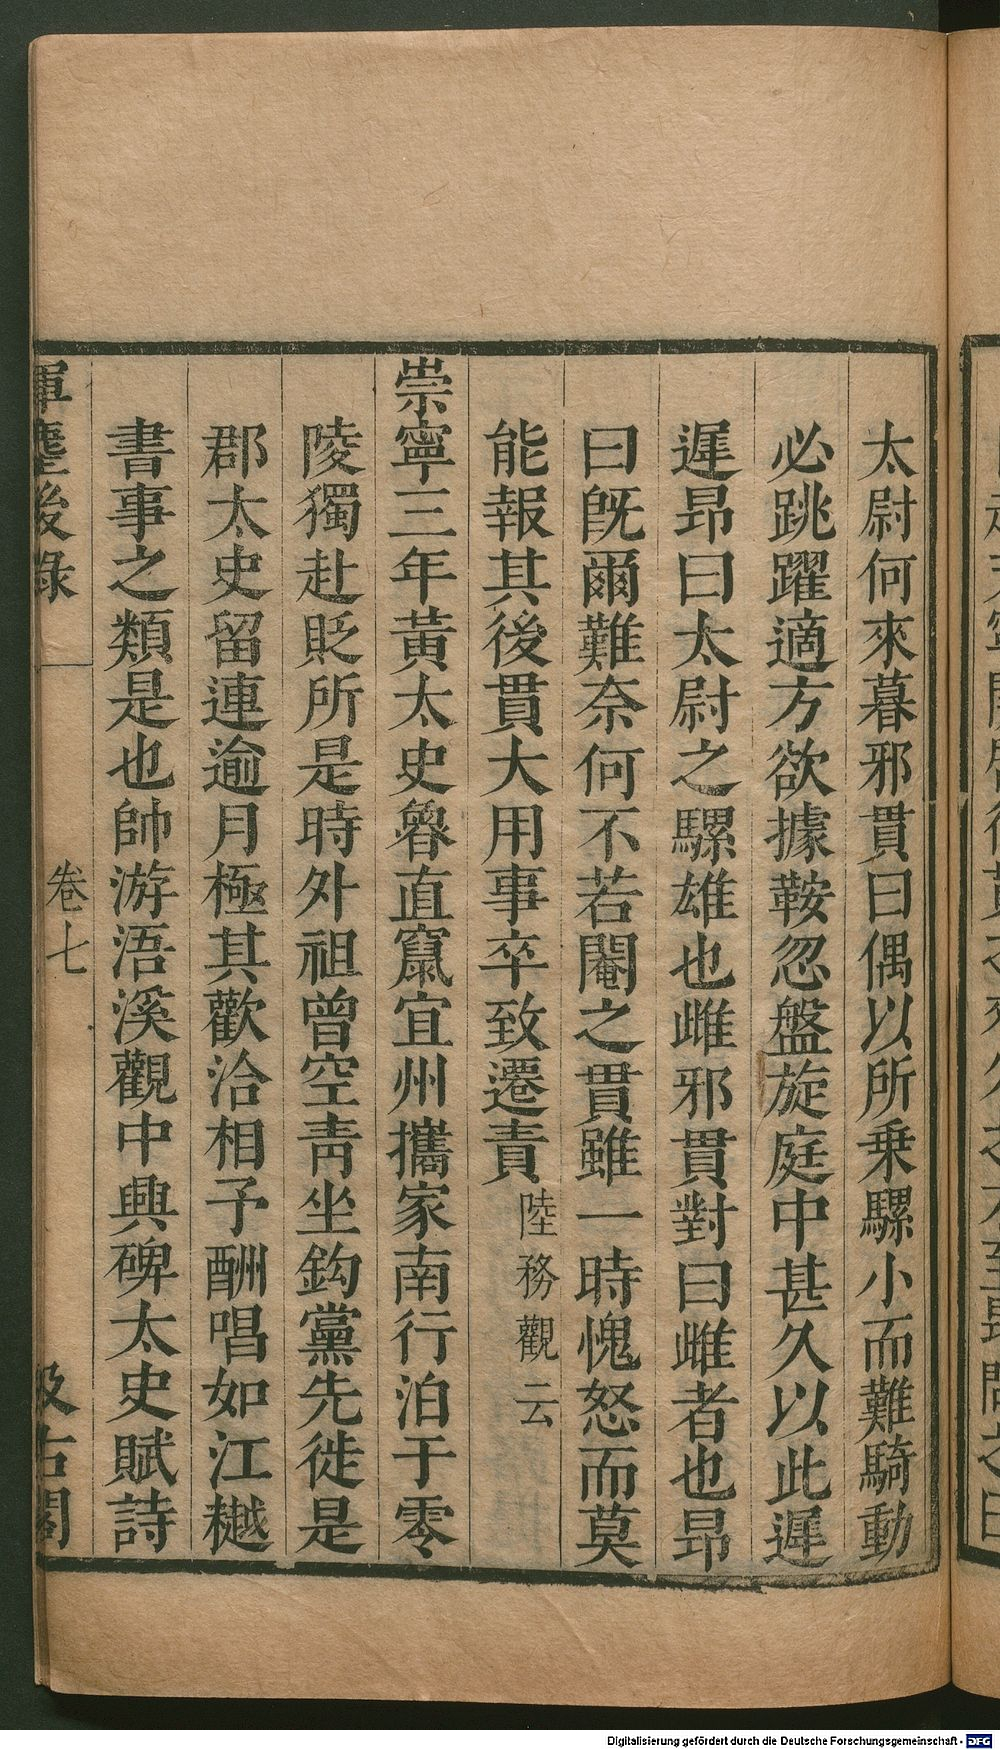 太尉何來暮邪貫曰偶以所乗騾小而難騎動
必跳躍適方欲據鞍忽盤旋庭中甚久以此遲
遲昂曰太尉之騾雄也雌邪貫對曰雌者也昂
曰旣爾難奈何不若閹之貫雖一時愧怒而莫
能報其後貫大用事卒致遷責陸務觀云
崇寧三年黃太史魯直竄宜州攜家南行泊于零
陵獨赴貶所是時外祖曾空靑坐鈎黨先徙是
郡太史留連逾月極其歡洽相予酬唱如江樾
書事之類是也帥游浯溪觀中興碑太史賦詩
揮麈後錄
卷七
汲古閣
Digitalisierung gefördert durch die Deutsche Forschungsgemeinschaft - DFG